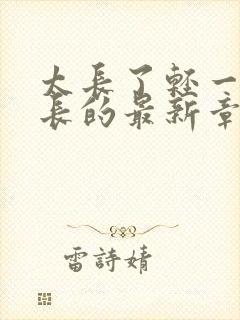 太長了輕一
長的最新章
雷詩婧